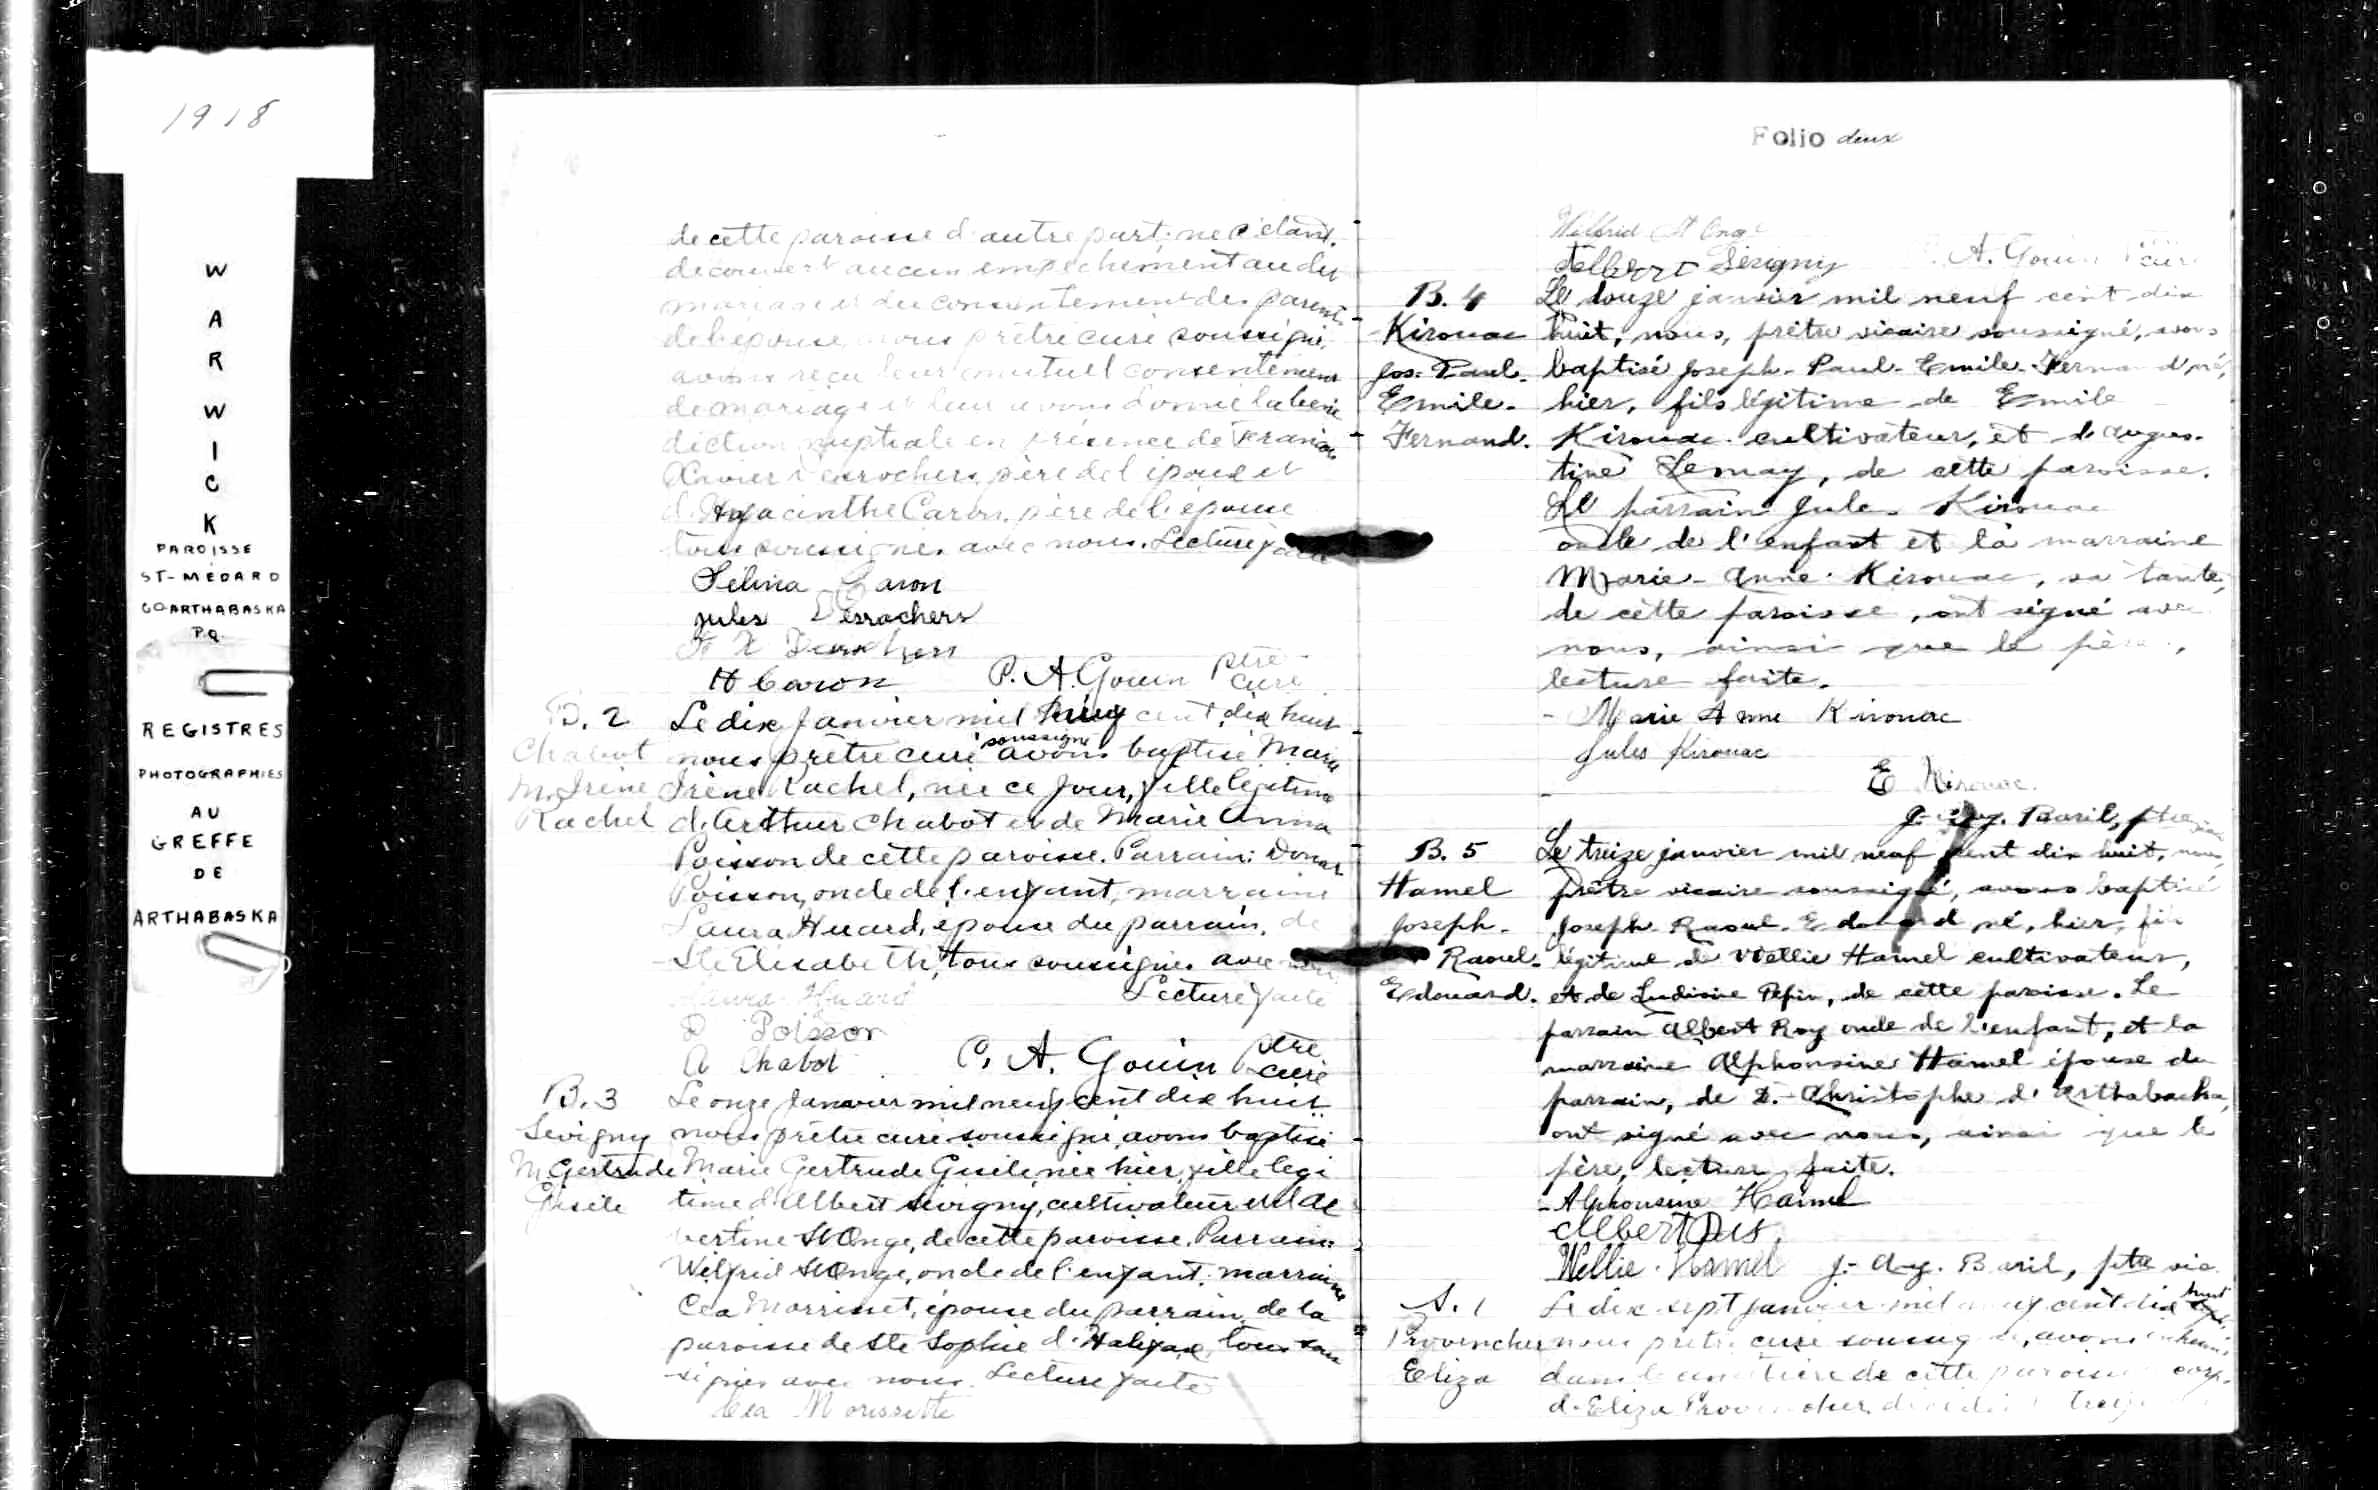 1918
WARWICK
PAROISSE
ST-MÉDARD
CO ARTHABASKA
P.Q.
REGISTRES
PHOTOGRAPHIÉS
AU
GREFFE
DE
ARTHABASKA
de cette paroisse d'autre part; ne s'étant
découvert aucun empêchement au dit
mariage et du consentement des parents
de l'épouse, nous prêtre curé soussigné,
avons reçu leur mutuel consentement
de mariage et leur avons donné la béné
diction nuptiale en présence de François
Xavier Desrochers, père de l'époux et
d'Hyacinthe Caron, père de l'épouse
tous soussignés avec nous. Lecture faite
Sélina Caron
Jules Desrochers
F X Desrochers
H Caron P. A. Gouin ptre
curé
B. 2 Le dix Janvier mil neuf cent dix huit
Chabot nous prêtre curé soussigné avons baptisé Marie
M. Irène Irène Rachel, née ce jour, fille légitime
Rachel d'Arthur Chabot et de Marie Anna
Poisson de cette paroisse. Parrain: Donat
Poisson, oncle de l'enfant, marraine
Laura Huard, épouse du parrain, de
Ste Elisabeth, tous soussignés avec nous
Laura Huard Lecture faite
D Poisson
A Chabot P. A. Gouin Ptre
curé
B. 3 Le onze Janvier mil neuf cent dix huit
Sevigny nous prêtre curé soussigné, avons baptisé
M. Gertrude Marie Gertrude Gisèle née hier, fille légi
Gisèle time d'Albert Sevigny, cultivateur et d'Al
bertine St Onge, de cette paroisse. Parrain:
Wilfrid St Onge, oncle de l'enfant; marraine
Céa Morrisset, épouse du parrain, de la
paroisse de Ste Sophie d'Halifax, tous sous
signés avec nous. Lecture faite
Céa Morissette
Folio deux
Wilfrid St Onge
Albert Sévigny P. A. Gouin Ptre
curé
B. 4 Le douze janvier mil neuf cent dix
Kirouac huit, nous, prêtre vicaire soussigné, avons
Jos. Paul- baptisé Joseph-Paul-Emile-Fernand né,
Emile- hier, fils légitime de Emile
Fernand. Kirouac cultivateur, et d'Augus-
tine Lemay, de cette paroisse.
Le parrain Jules Kirouac
oncle de l'enfant et la marraine
Marie-Anne Kirouac, sa tante,
de cette paroisse, ont signé avec
nous, ainsi que le père,
lecture faite.
Marie Anne Kirouac
Jules Kirouac
E Kirouac.
J.-Aug. Baril, ptre
B. 5 Le treize janvier mil neuf cent dix huit, nous,
Hamel prêtre vicaire soussigné, avons baptisé
Joseph- Joseph-Raoul-Edouard né, hier, fils
Raoul- légitime de Wellie Hamel cultivateur,
Edouard. et de Ludivine Pepin, de cette paroisse. Le
parrain Albert Roy oncle de l'enfant, et la
marraine Alphonsine Hamel épouse du
parrain, de St.-Christophe d'Arthabaska,
ont signé avec nous, ainsi que le
père, lecture faite.
Alphonsine Hamel
Albert
Wellie Hamel J.-Aug. Baril, ptre vic
S. 1 Le dix sept janvier mil neuf cent dix huit
Provencher nous prêtre curé soussigné, avons inhumé,
Eliza dans le cimetière de cette paroisse corps
d'Eliza Provencher, décédée treize